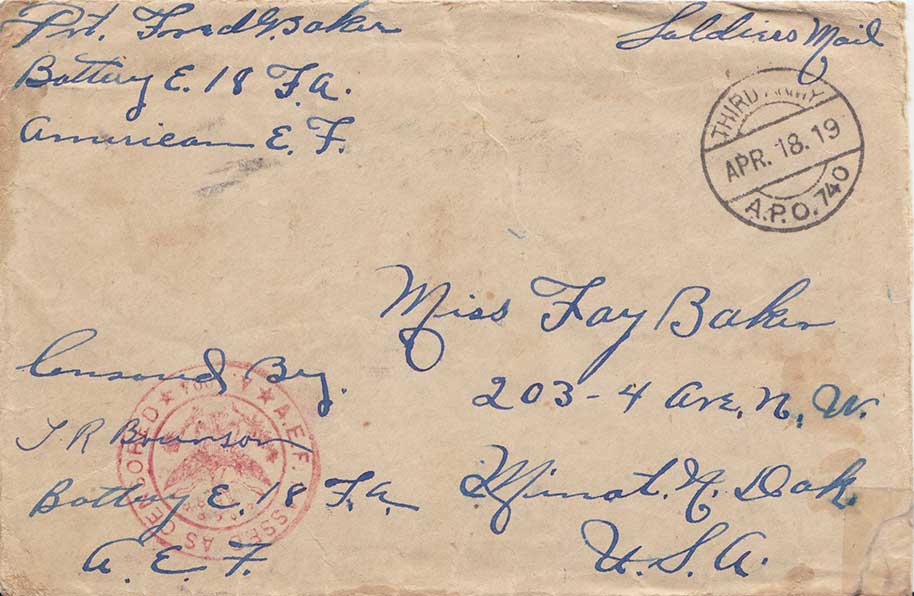 Pvt. Fred G. Baker
Battery E. 18 F.A.
American E. F.
Soldiers Mail
THIRD ARMY
APR. 18. 19
A.P.O. 740
Miss Fay Baker
203-4 Ave. N. W.
Minot. N. Dak.
U.S.A.
Censored By.
Battery E. 18 F.A.
A. E. F.
A.E.F. PASSED AS CENSORED